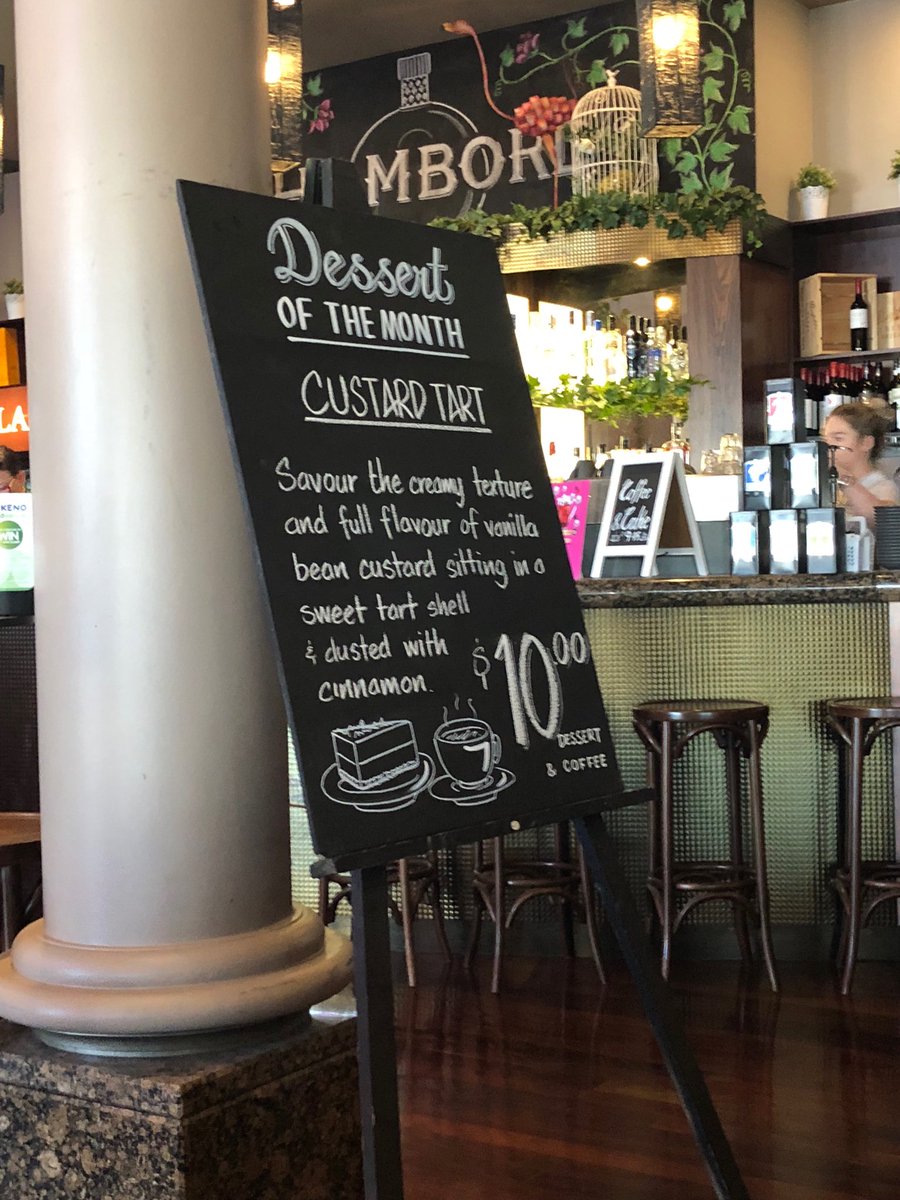 MBORD
Dessert
OF THE MONTH
CUSTARD TART
Savour the creamy texture
and full flavour of vanilla
bean custard sitting in a
sweet tart shell
& dusted with
cinnamon.
$10.00
DESSERT
& COFFEE
Coffee
& Cake
LA
KENO
WIN